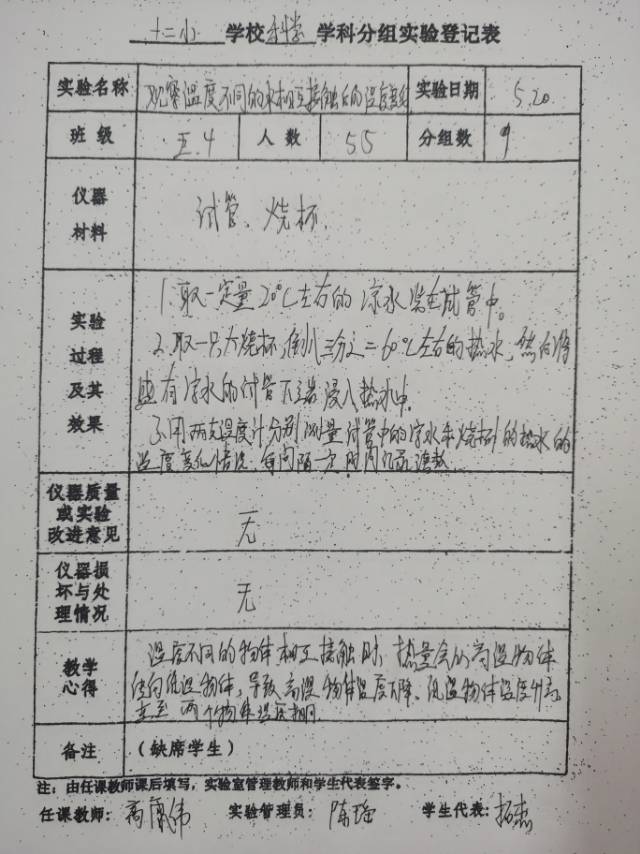 十二小 学校 科学 学科分组实验登记表
实验名称 观察温度不同的水相互接触后的温度变化 实验日期 5.20
班级 五.4 人数 55 分组数 9
仪器材料 试管、烧杯.
实验过程及其效果
1.取一定量20℃左右的凉水装在试管中。
2.取一只大烧杯,倒入三分之二60℃左右的热水,然后将
盛有凉水的试管下端浸入热水中.
3.用两支温度计分别测量试管中的凉水和烧杯的热水的
温度变化情况.每间隔一定时间读数.
仪器质量或实验改进意见 无
仪器损坏与处理情况 无
教学心得
温度不同的物体相互接触时,热量会从高温物体
传向低温物体,导致高温物体温度下降、低温物体温度升高,
直至两个物体温度相同.
备注 (缺席学生)
注:由任课教师课后填写,实验室管理教师和学生代表签字。
任课教师: 高 伟 实验管理员: 陈瑶 学生代表: 杰